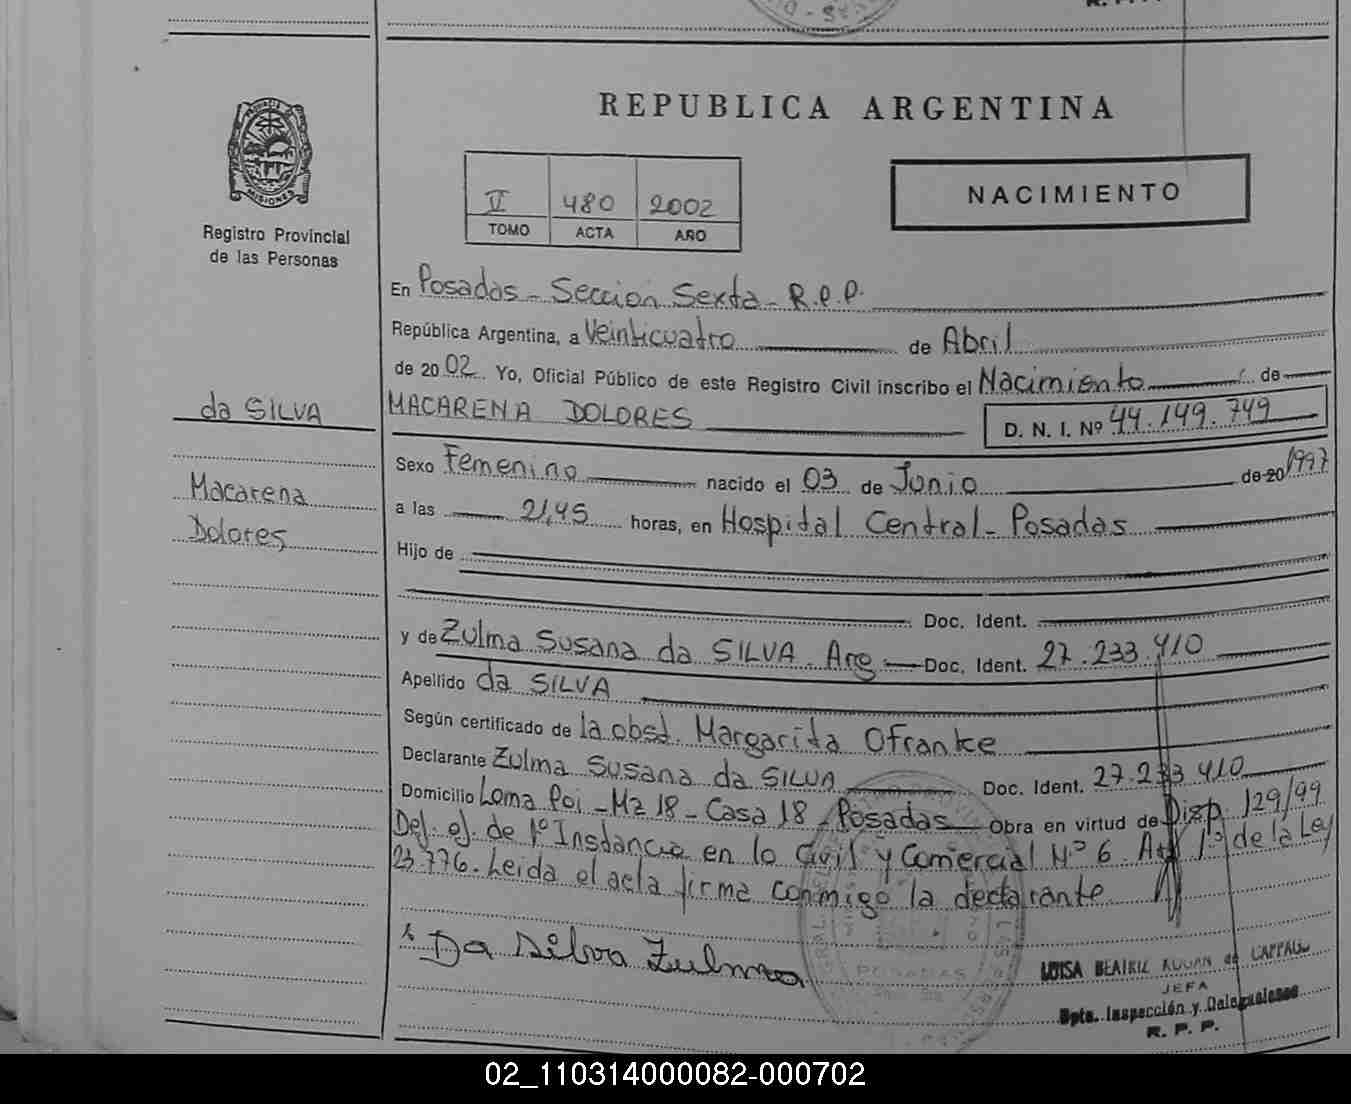 REPUBLICA ARGENTINA
MISIONES
Registro Provincial
de las Personas
V 480 2002
TOMO ACTA AÑO
NACIMIENTO
En Posadas - Sección Sexta - R.P.P.
República Argentina, a Veinticuatro de Abril
de 2002 Yo, Oficial Público de este Registro Civil inscribo el Nacimiento de
da SILVA
MACARENA DOLORES
D. N. I. Nº 44.149.749
Macarena
Dolores
Sexo Femenino nacido el 03 de Junio de 20 1997
a las 21,45 horas, en Hospital Central - Posadas
Hijo de
Doc. Ident.
y de Zulma Susana da SILVA Arg Doc. Ident. 27.233.410
Apellido da SILVA
Según certificado de la obst. Margarita Ofranke
Declarante Zulma Susana da SILVA Doc. Ident. 27.233.410
Domicilio Loma Poi - Mz 18 - Casa 18 - Posadas Obra en virtud de Disp. 129/99
Def. of. de 1º Instancia en lo Civil y Comercial Nº 6. Art 1º de la Ley
23.776. Leida el acta firma conmigo la declarante
Da Silva Zulma
POSADAS
LUISA BEATRIZ de
JEFA
Dpto. Inspección y Delegaciones
R. P. P.
02_110314000082-000702